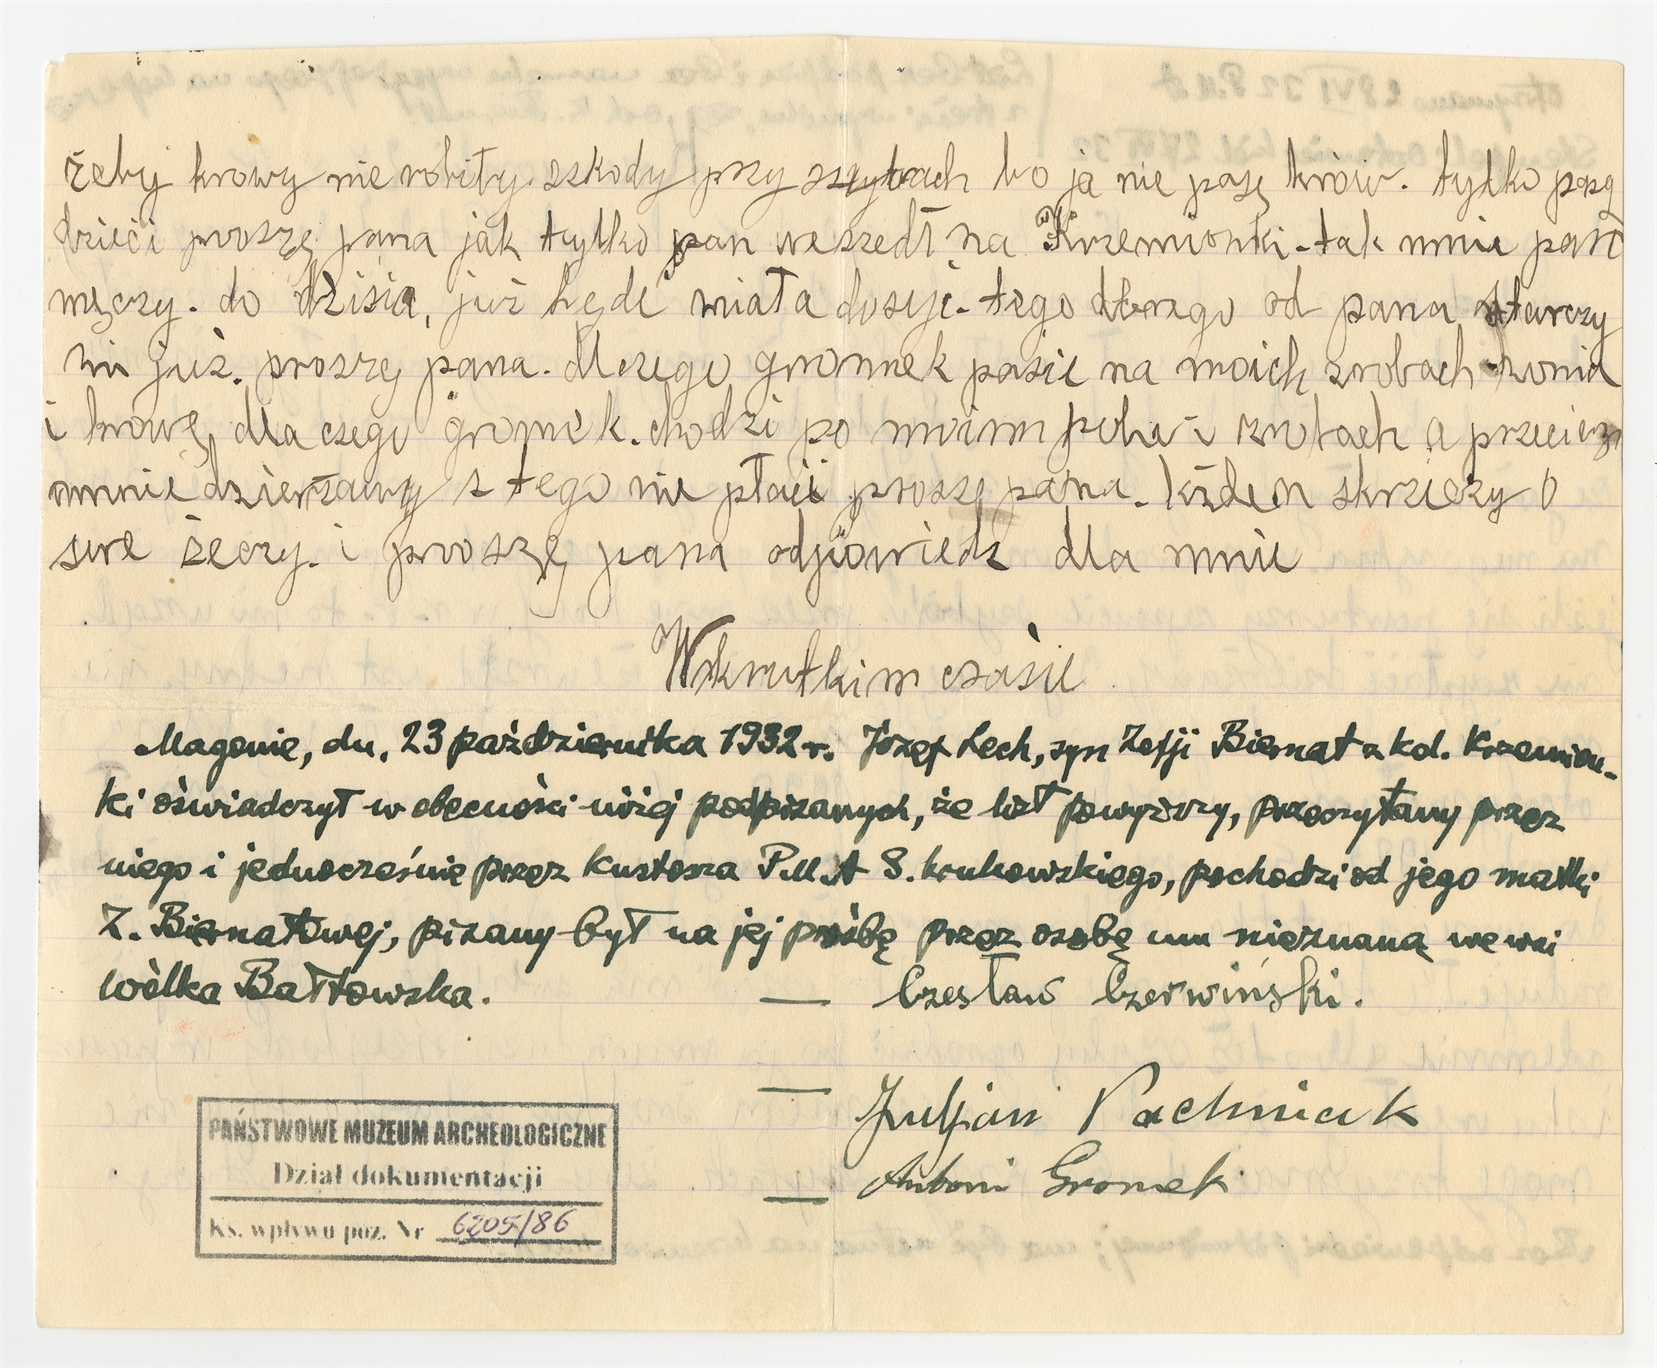 żeby krowy nie robiły szkody przy szybach bo ja nie pasę krów. tylko pasą
dzieci proszę pana jak tylko pan weszedł na Krzemionki - tak mnie pan
męczy. do dzisia, już będe miała dosyć - tego dobrego od pana starczy
mi już. proszę pana. dlczego gromek pasie na moich zrobach konia
i krowę, dla czego gromek. chodzi po moim polu i zrobach a przeciesz
mnie dzierżawy z tego nie płaci proszę pana. kżden skrzeczy o
swe żeczy. i proszę pana odpowiedz dla mnie
Wkrutkim czasie
Magonie, dn. 23 października 1932 r. Józef Lech, syn Zofji Biernat z kol. Krzemion-
ki oświadczył w obecności niżej podpisanych, że list powyższy, przeczytany przez
niego i jednocześnie przez kustosza P.M.A S. Krukowskiego, pochodzi od jego matki
Z. Biernatowej, pisany był na jej prośbę przez osobę mu nieznaną we wsi
Wólka Bałtowska. — Czesław Czerwiński.
— Juljan Pachniak
— Antoni Gromek
PAŃSTWOWE MUZEUM ARCHEOLOGICZNE
Dział dokumentacji
Ks. wpływu poz. Nr 6205/86